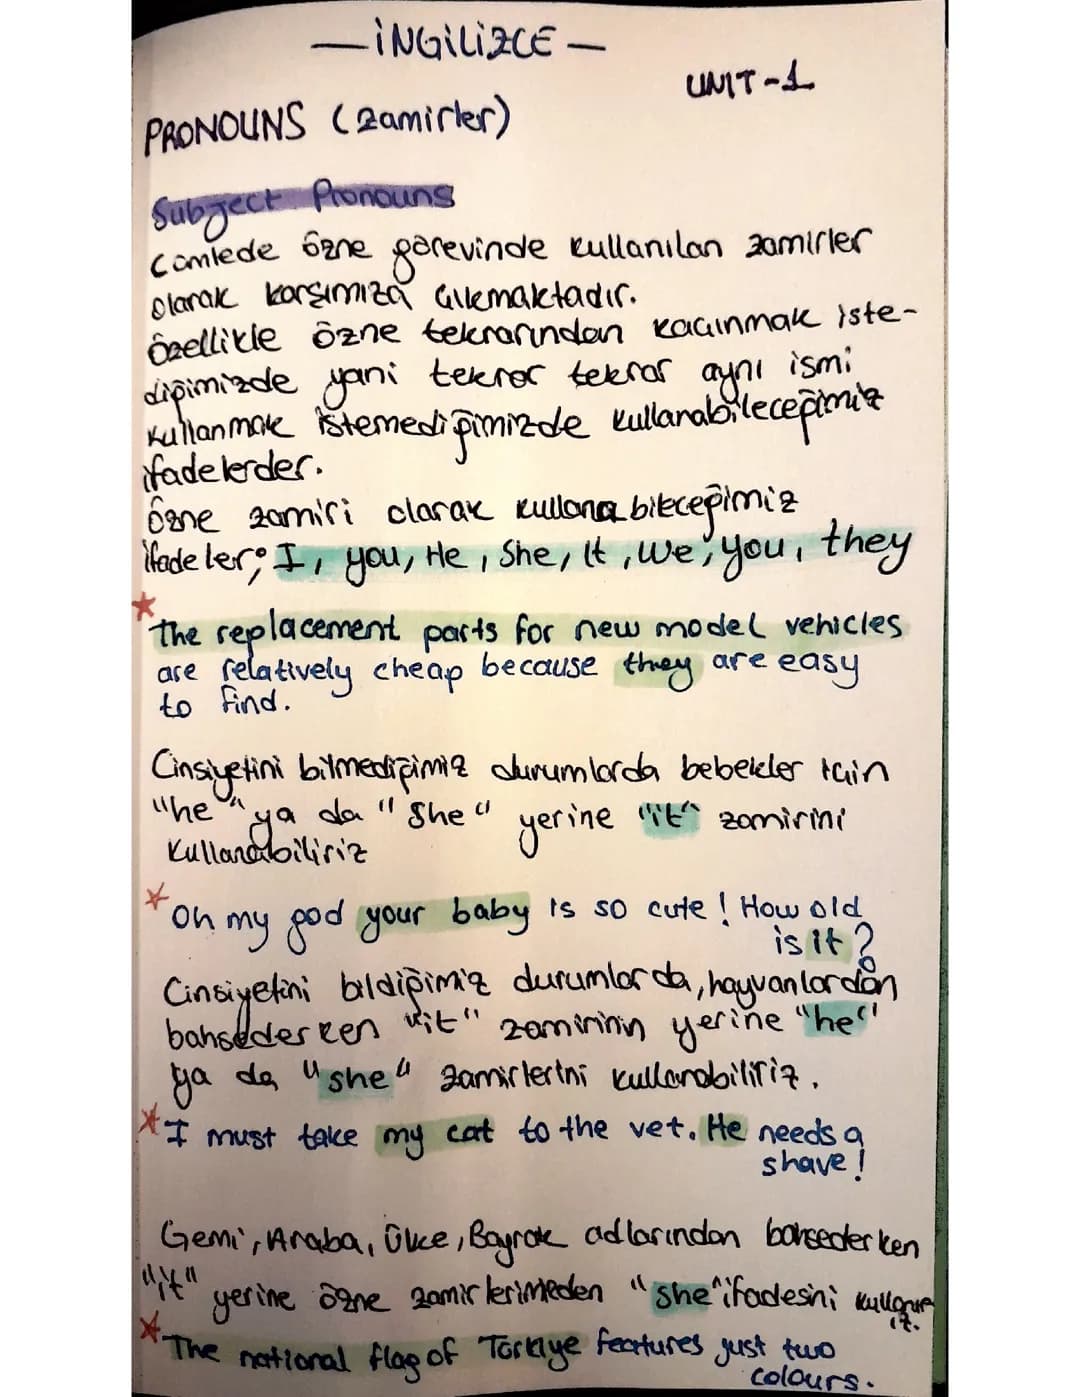 — İNGİLİZCE —
UNIT-1
PRONOUNS (Zamirler)
Subject Pronouns
Cümlede özne görevinde kullanılan zamirler
olarak karşımıza çıkmaktadır.
Özellikle özne tekrarından kaçınmak iste-
diğimizde yani tekrar tekrar aynı ismi
kullanmak istemediğimizde kullanabileceğimiz
ifadelerder.
Özne zamiri olarak kullanabileceğimiz
ifadeler; I, you, He, She, It, We, you, they
* The replacement parts for new model vehicles
are relatively cheap because they are easy
to find.
Cinsiyetini bilmediğimiz durumlarda bebekler için
"he" ya da "She" yerine "it" zamirini
Kullanabiliriz
* Oh my god your baby is so cute! How old
is it?
Cinsiyetini bildiğimiz durumlarda, hayvanlardan
bahsederken "it" zamirinin yerine "he"
ya da "she" zamirlerini kullanabiliriz.
* I must take my cat to the vet. He needs a
shave!
Gemi, Araba, Ülke, Bayrak adlarından bahsederken
"it" yerine özne zamirlerimeden "she" ifadesini kullanır
ız.
* The national flag of Türkiye features just two
colours.